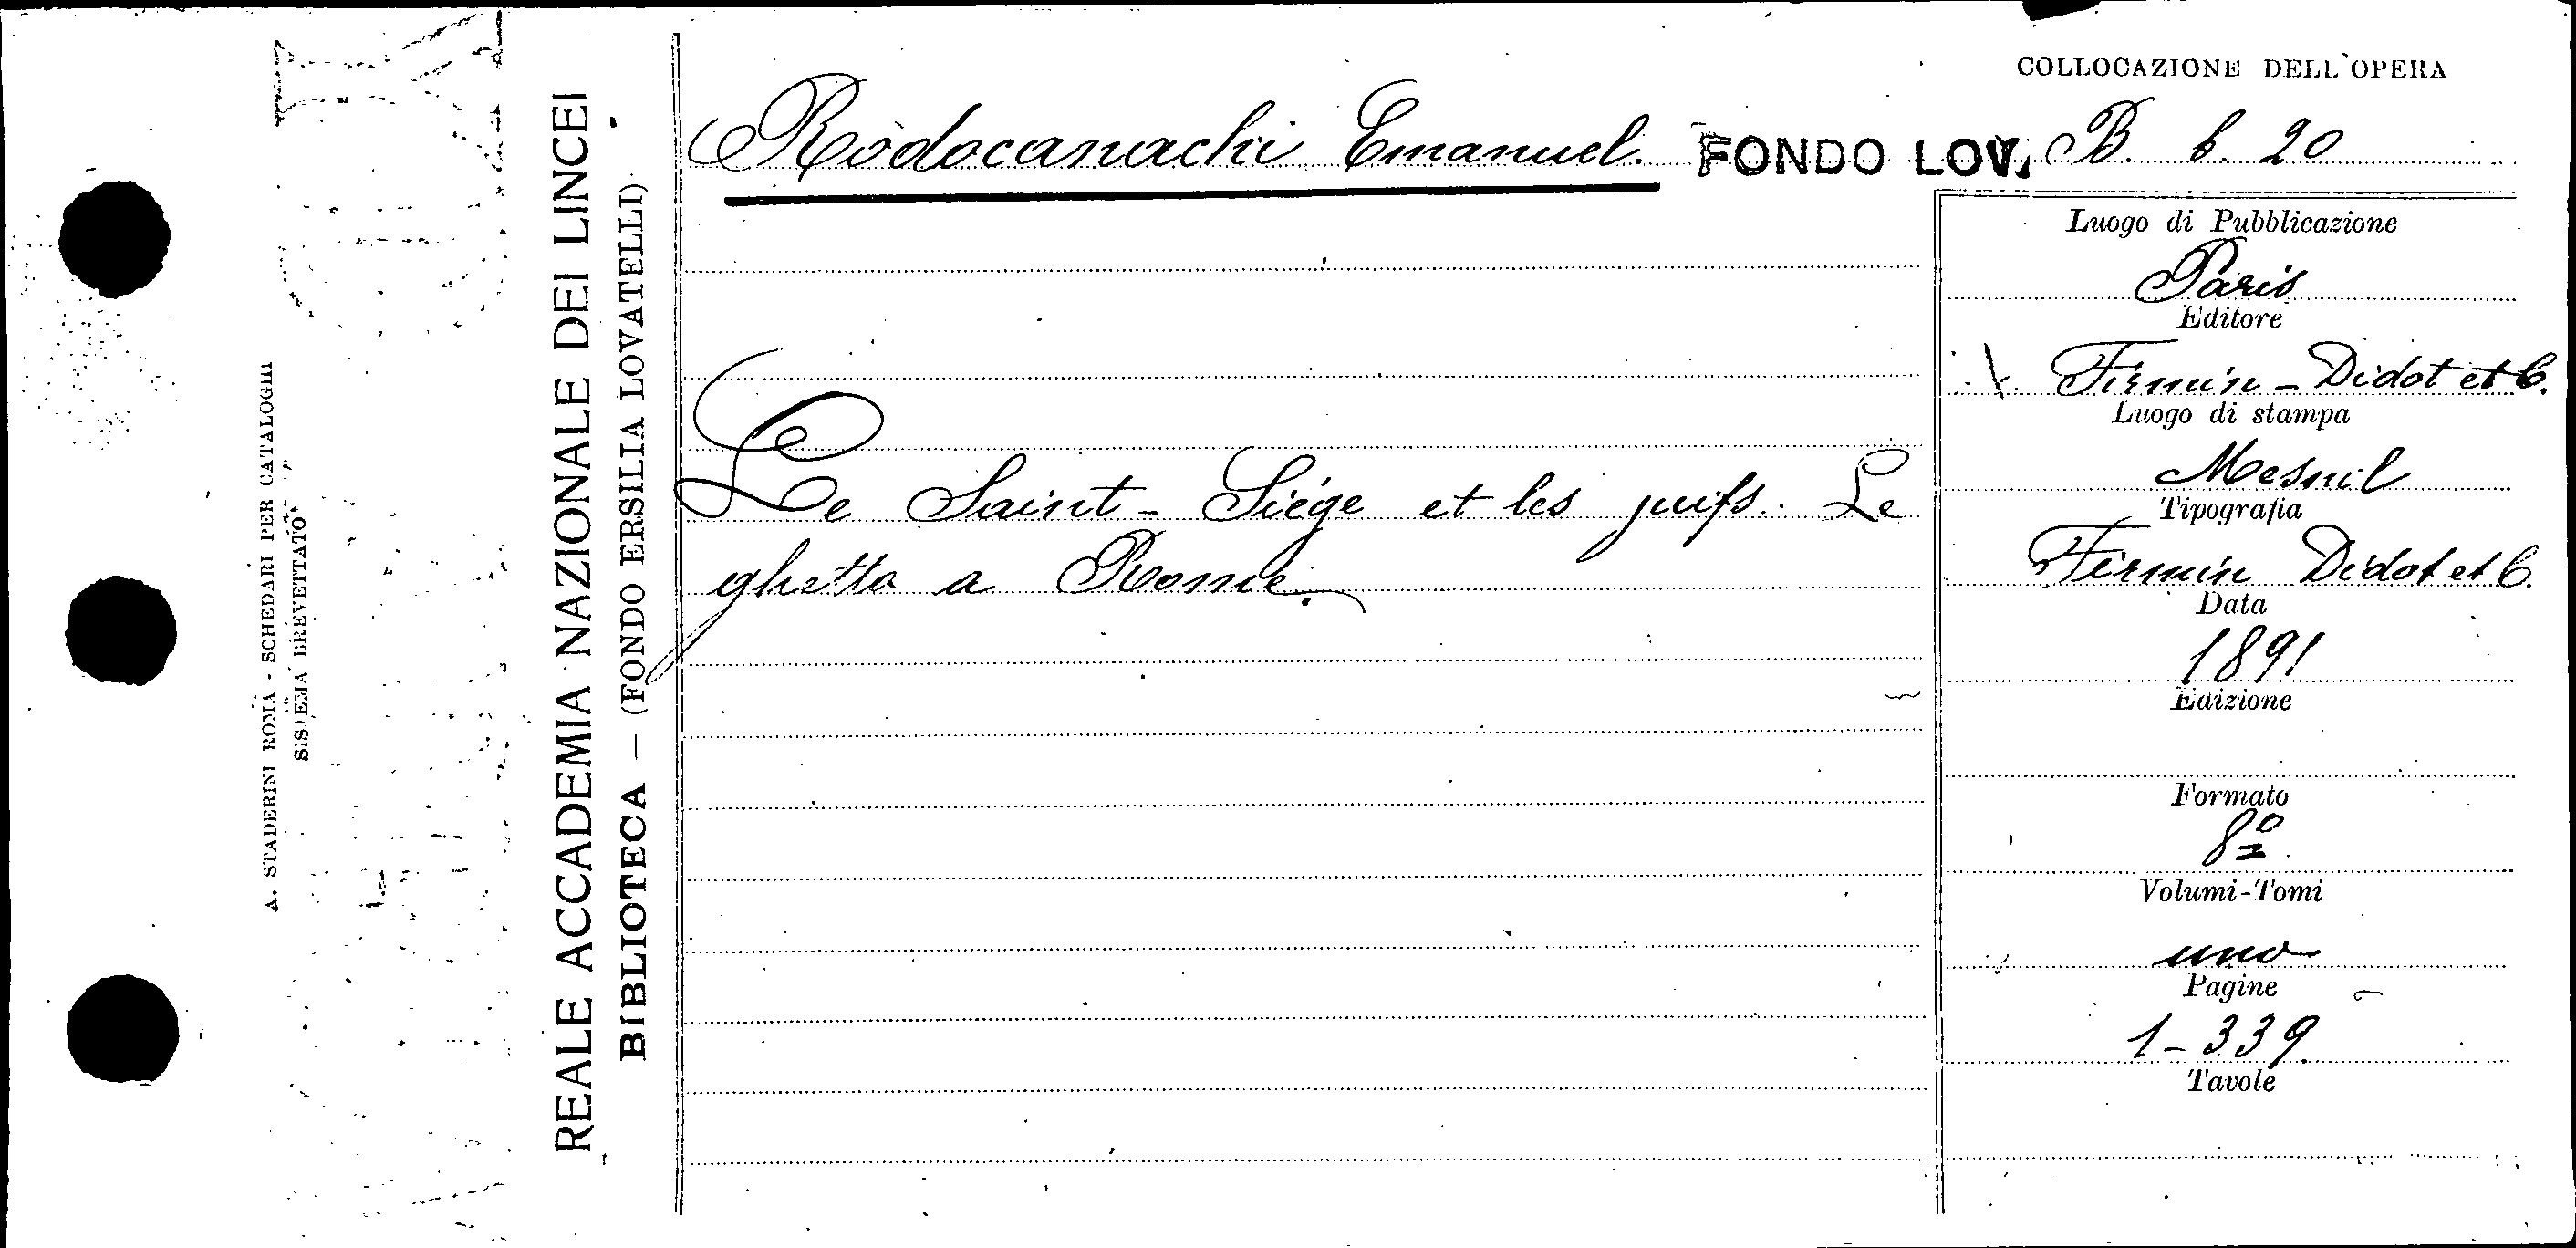 A. STADERINI ROMA - SCHEDARI PER CATALOGHI
SISTEMA BREVETTATO
REALE ACCADEMIA NAZIONALE DEI LINCEI
BIBLIOTECA — (FONDO ERSILIA LOVATELLI)
COLLOCAZIONE DELL'OPERA
Rodocanachi Emanuel. FONDO LOV. B. b. 20
Le Saint-Siége et les juifs. Le
ghetto a Rome.
Luogo di Pubblicazione
Paris
Editore
Firmin-Didot et C.
Luogo di stampa
Mesnil
Tipografia
Firmin Didot et C.
Data
1891
Edizione
Formato
8º
Volumi-Tomi
uno
Pagine
1-339.
Tavole